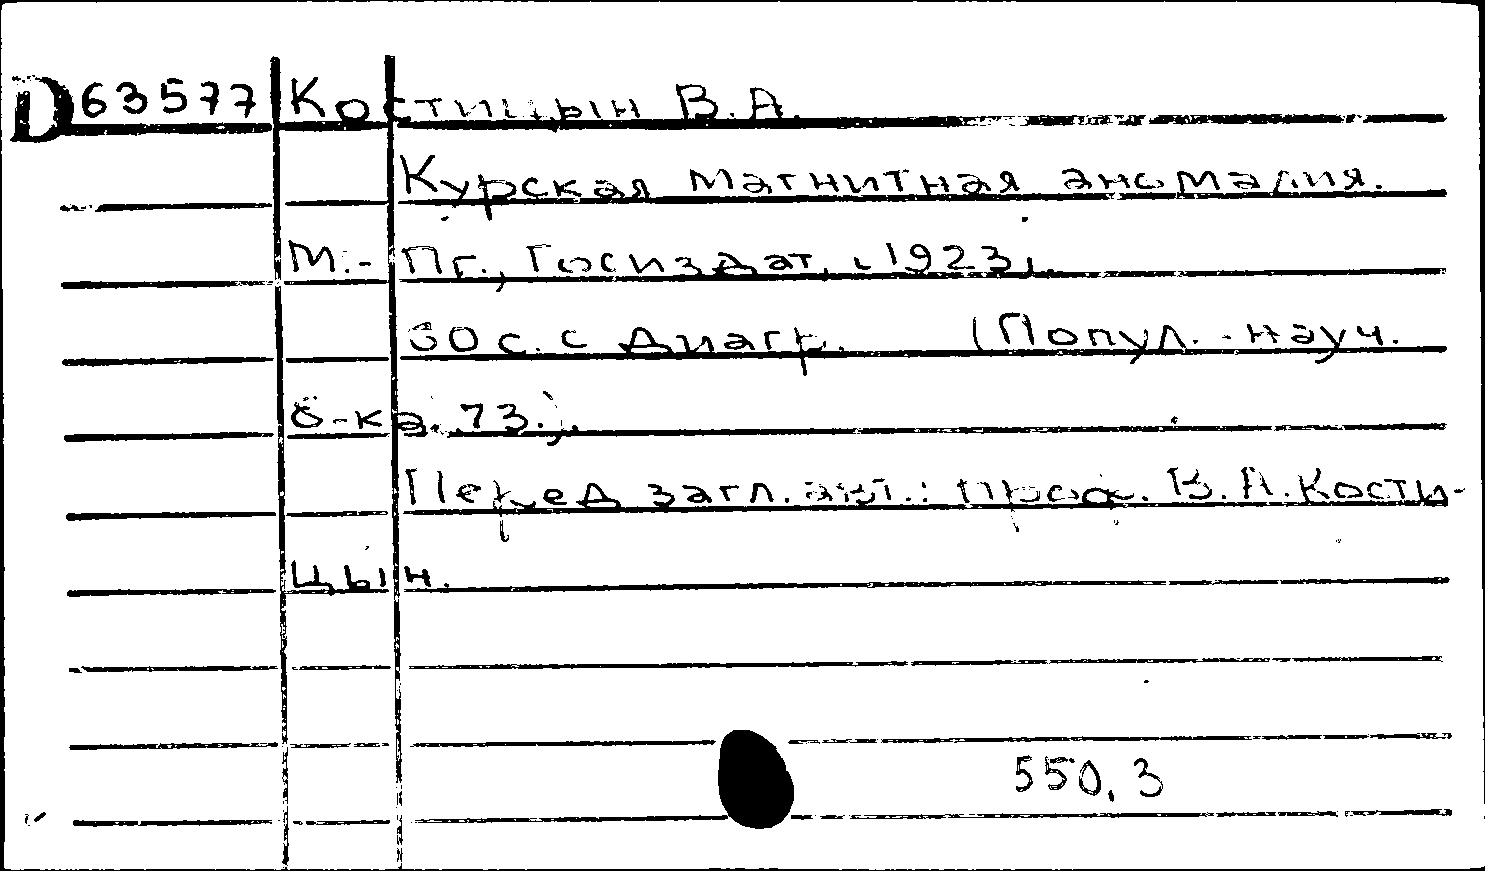 D 63577 Костицын В.А.
Курская магнитная аномалия.
М.-Пг., Госиздат, [1923].
с. с диагр. (Попул.-науч.
б-ка. 73.).
Перед загл. авт.: проф. В.А. Кости-
цын.
550.3